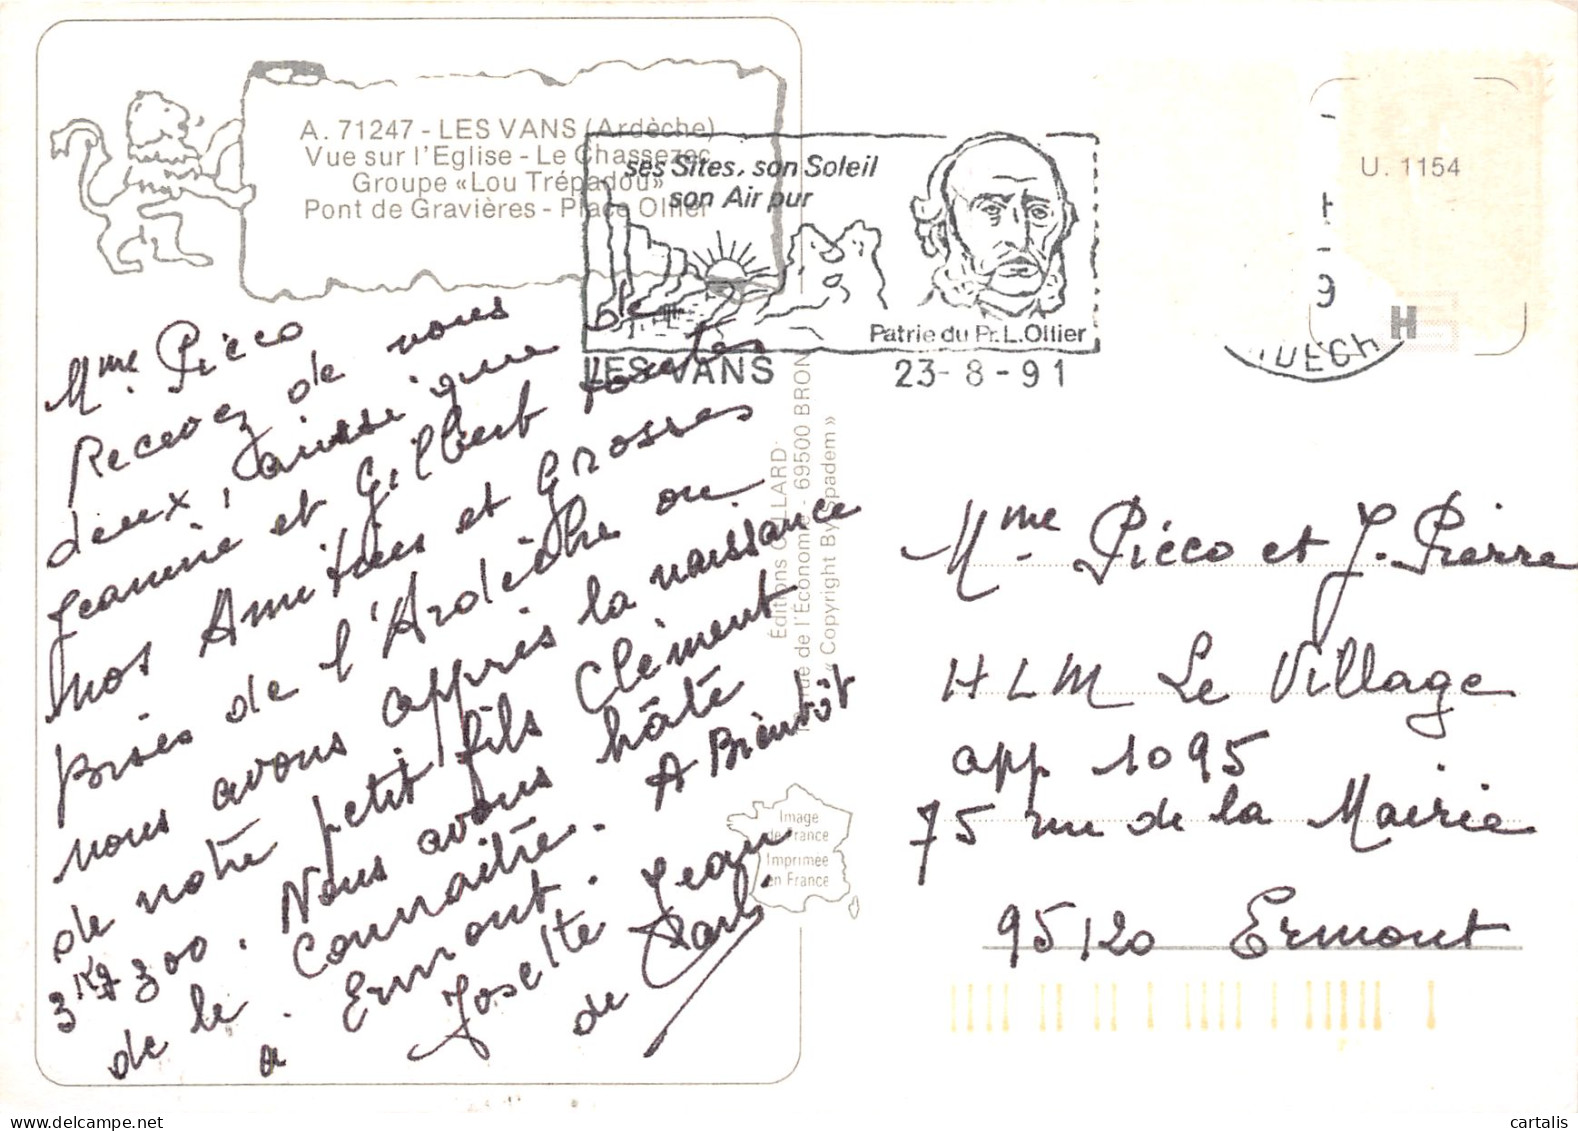 A. 71247 - LES VANS (Ardèche)
Vue sur l'Eglise - Le Chassezac
Groupe «Lou Trépadou»
Pont de Gravières - Place Ollier
ses Sites, son Soleil
son Air pur
Patrie du Pr. L. Ollier
LES VANS 23-8-91
ARDECH
9
H
U. 1154
Mme. Picco
Recevez de nous
deux, ainsi que de
Jeanine et Gilbert toutes
nos Amitiées et Grosses
Bises de l'Ardèche ou
nous avons appris la naissance
de notre petit fils Clément
3K 300. Nous avons hâte
de le Connaitre. A Bientôt
a Ermont.
Josette Jean
de Carli
Éditions GALLARD
rue de l'Économie - 69500 BRON
« Copyright By Spadem »
Image
de France
Imprimée
en France
Mme. Picco et J. Pierre
HLM Le Village
app 1095
75 rue de la Mairie
95120 Ermont
cartalis.com